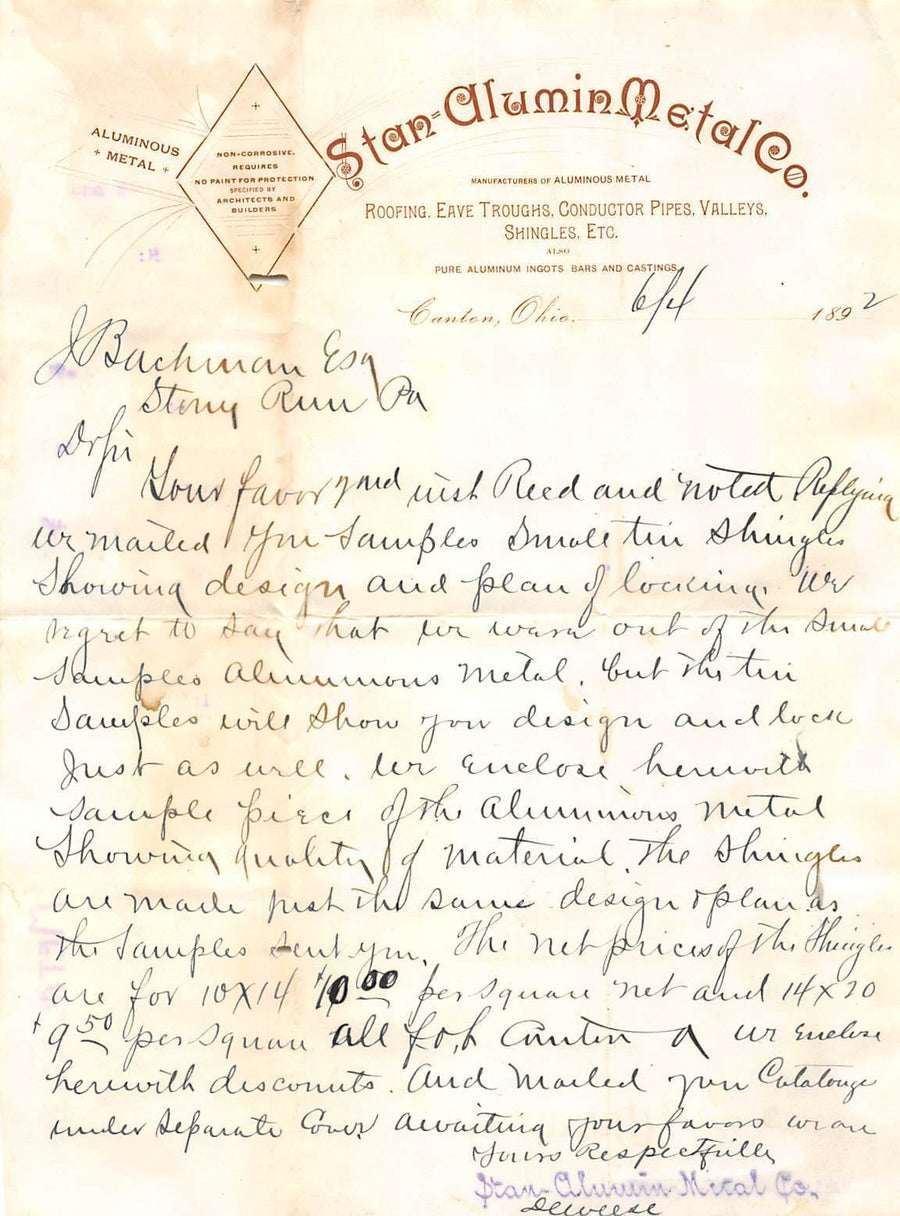 ALUMINOUS
+ METAL +
NON-CORROSIVE.
REQUIRES
NO PAINT FOR PROTECTION
SPECIFIED BY
ARCHITECTS AND
BUILDERS
Stan-Alumin Metal Co.
MANUFACTURERS OF ALUMINOUS METAL
ROOFING, EAVE TROUGHS, CONDUCTOR PIPES, VALLEYS,
SHINGLES, ETC.
ALSO
PURE ALUMINUM INGOTS BARS AND CASTINGS
Canton, Ohio. 6/4 1892
J Bachman Esq
Stony Run Pa
Dr Sir
Your favor 2nd inst Recd and noted Replying
we mailed you samples Small tin Shingles
Showing design and plan of locking. We
regret to say that we warn out of the small
Samples Aluminous Metal, but the tin
Samples will show you design and lock
Just as well. We Enclose herewith
sample piece of the Aluminous Metal
Showing quality of material. The Shingles
are made just the same design & plan as
the Samples sent you. The net prices of the Shingles
are for 10X14 $10 00 per square net and 14X20
$9 50 per square all f.o.b Canton O We Enclose
herewith discounts. And mailed you Catalouge
under Separate Cover awaiting your favors we are
Yours Respectfully
Stan-Alumin Metal Co.
Deweese